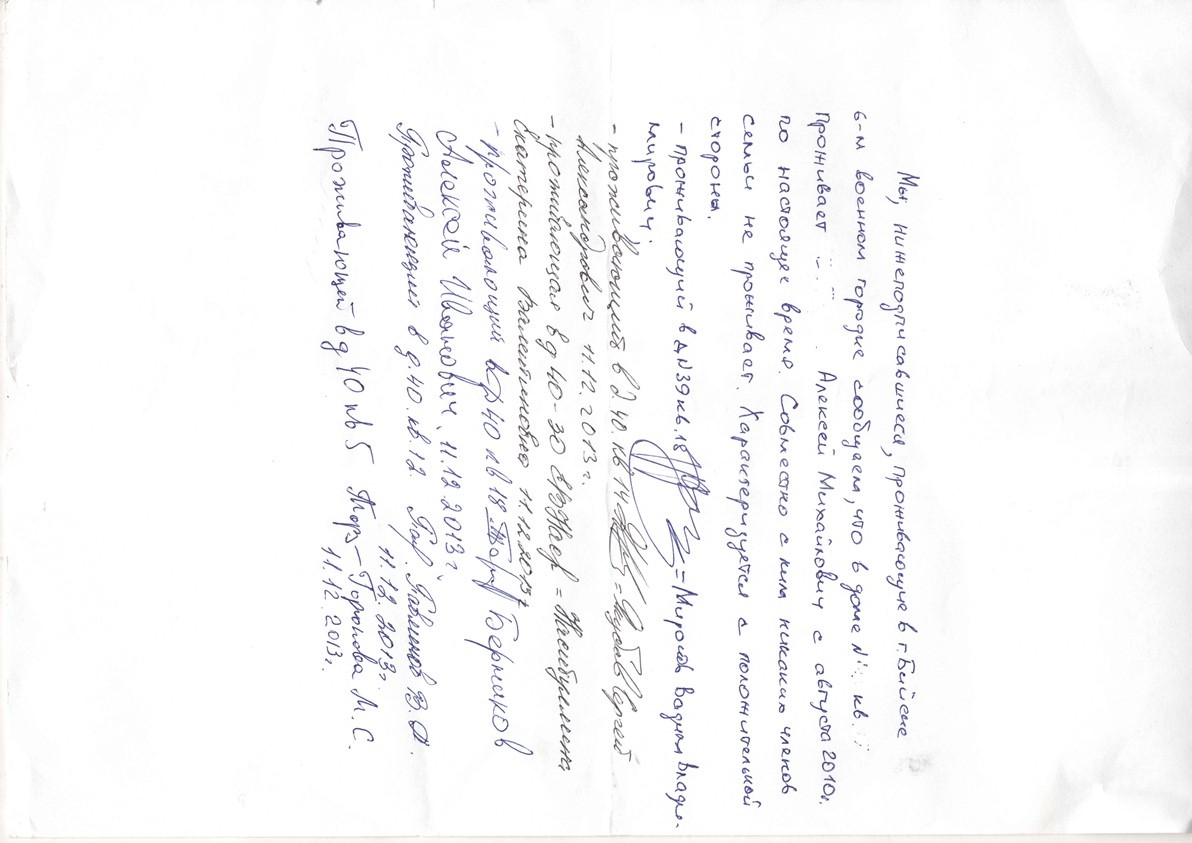 Мы, нижеподписавшиеся, проживающие в г. Бийске
6-м военном городке сообщаем, что в доме № кв.
проживает Алексей Михайлович с августа 2010г.
по настоящее время. Совместно с ним никаких членов
семьи не проживает. Характеризуется с положительной
стороны.
- проживающий в д N39 кв. 18 = Миронов Вадим Влади-
мирович.
- проживающий в д. 40. кв 14 = Сергей
Александрович 11.12.2013г.
- проживающая в д 40-30 =
Екатерина Валентиновна 11.12.2013г
- проживающий в д 40 кв 18 Берняков
Алексей Иванович. 11.12.2013г.
Проживающий в д. 40. кв. 12. В. Ф.
11.12.2013г.
Проживающей в д 40 кв 5 Торопова М. С.
11.12.2013г.